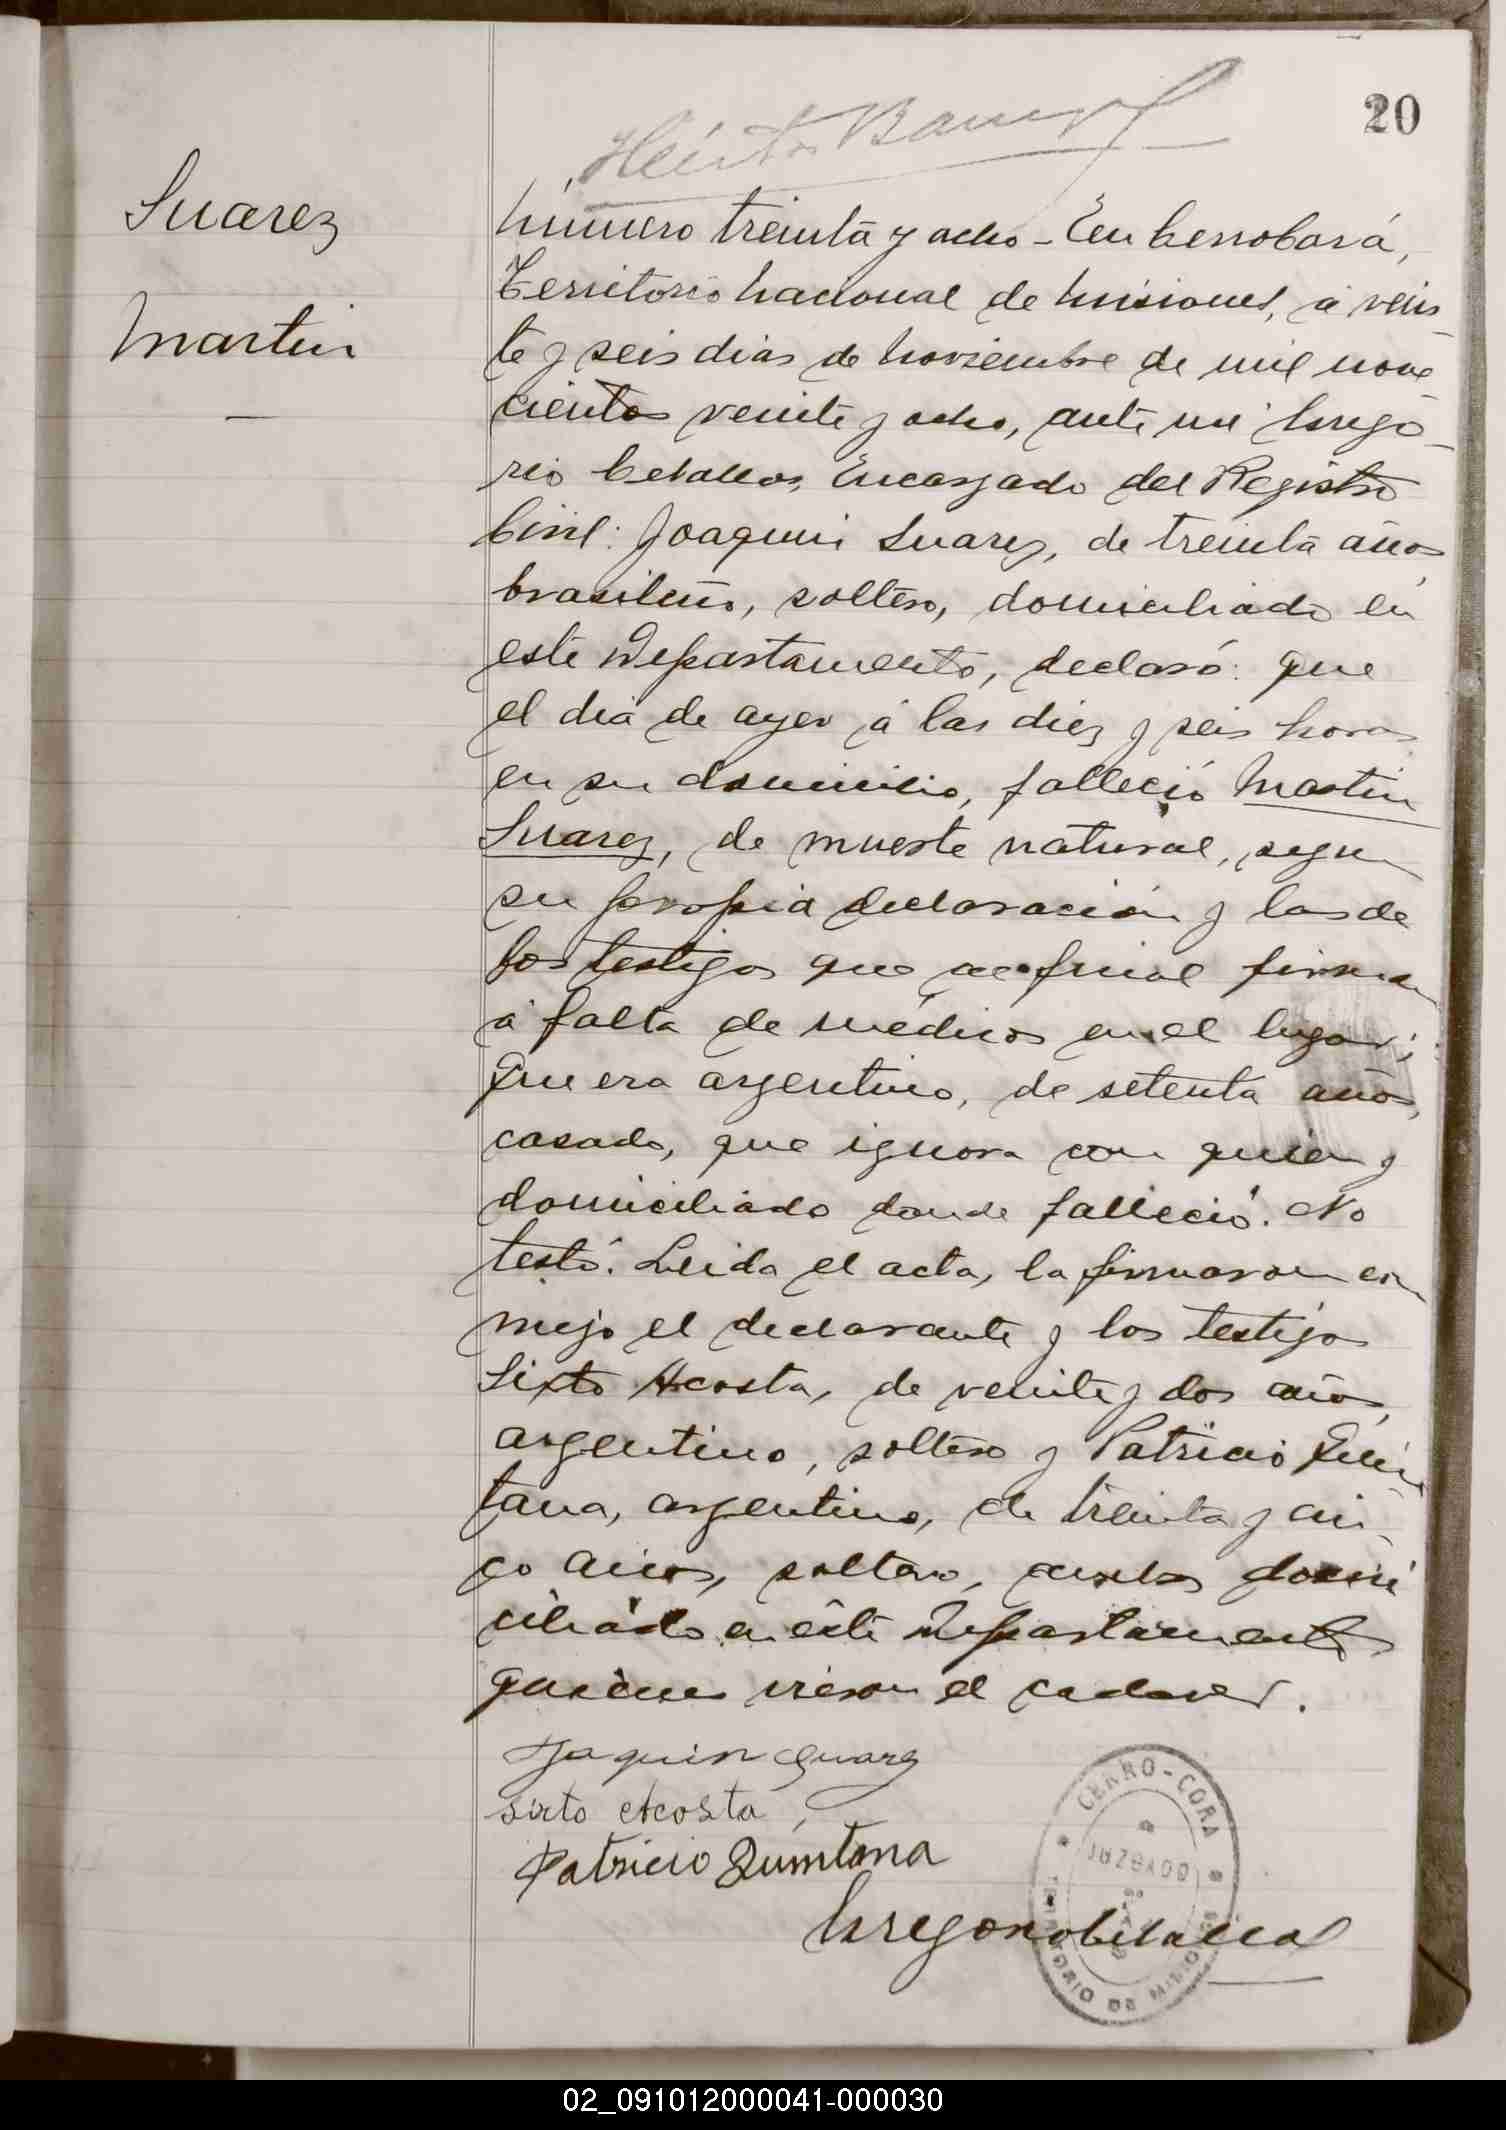 20
Héctor
Suarez
Martin
Número treinta y ocho - En Cerrocorá,
Territorio Nacional de Misiones, á vein
te y seis dias de Noviembre de mil nove
cientos veinte y ocho, ante mi Grego-
rio Ceballos, Encargado del Registro
Civil: Joaquin Suarez, de treinta años,
brasileño, soltero, domiciliado en
este Departamento, declaró: Que
el dia de ayer á las diez y seis horas
en su domicilio, falleció Martin
Suarez, de muerte natural, segun
su propia declaración y las de
los testigos que al final firman
á falta de médicos en el lugar;
Que era argentino, de setenta años,
casado, que ignora con quien y
domiciliado donde falleció. No
testó. Leida el acta, la firmaron con
migo el declarante y los testigos
Sixto Acosta, de veinte y dos años,
argentino, soltero y Patricio Quin
tana, argentino, de treinta y cin-
co años, soltero, ambos domi
ciliado en este Departamento
quienes vieron el cadaver.
Joaquin Suarez
Sixto Acosta
Patricio Quintana
Gregorio Ceballos
CERRO-CORA
JUZGADO
TERRITORIO DE MISIONES
02_091012000041-000030